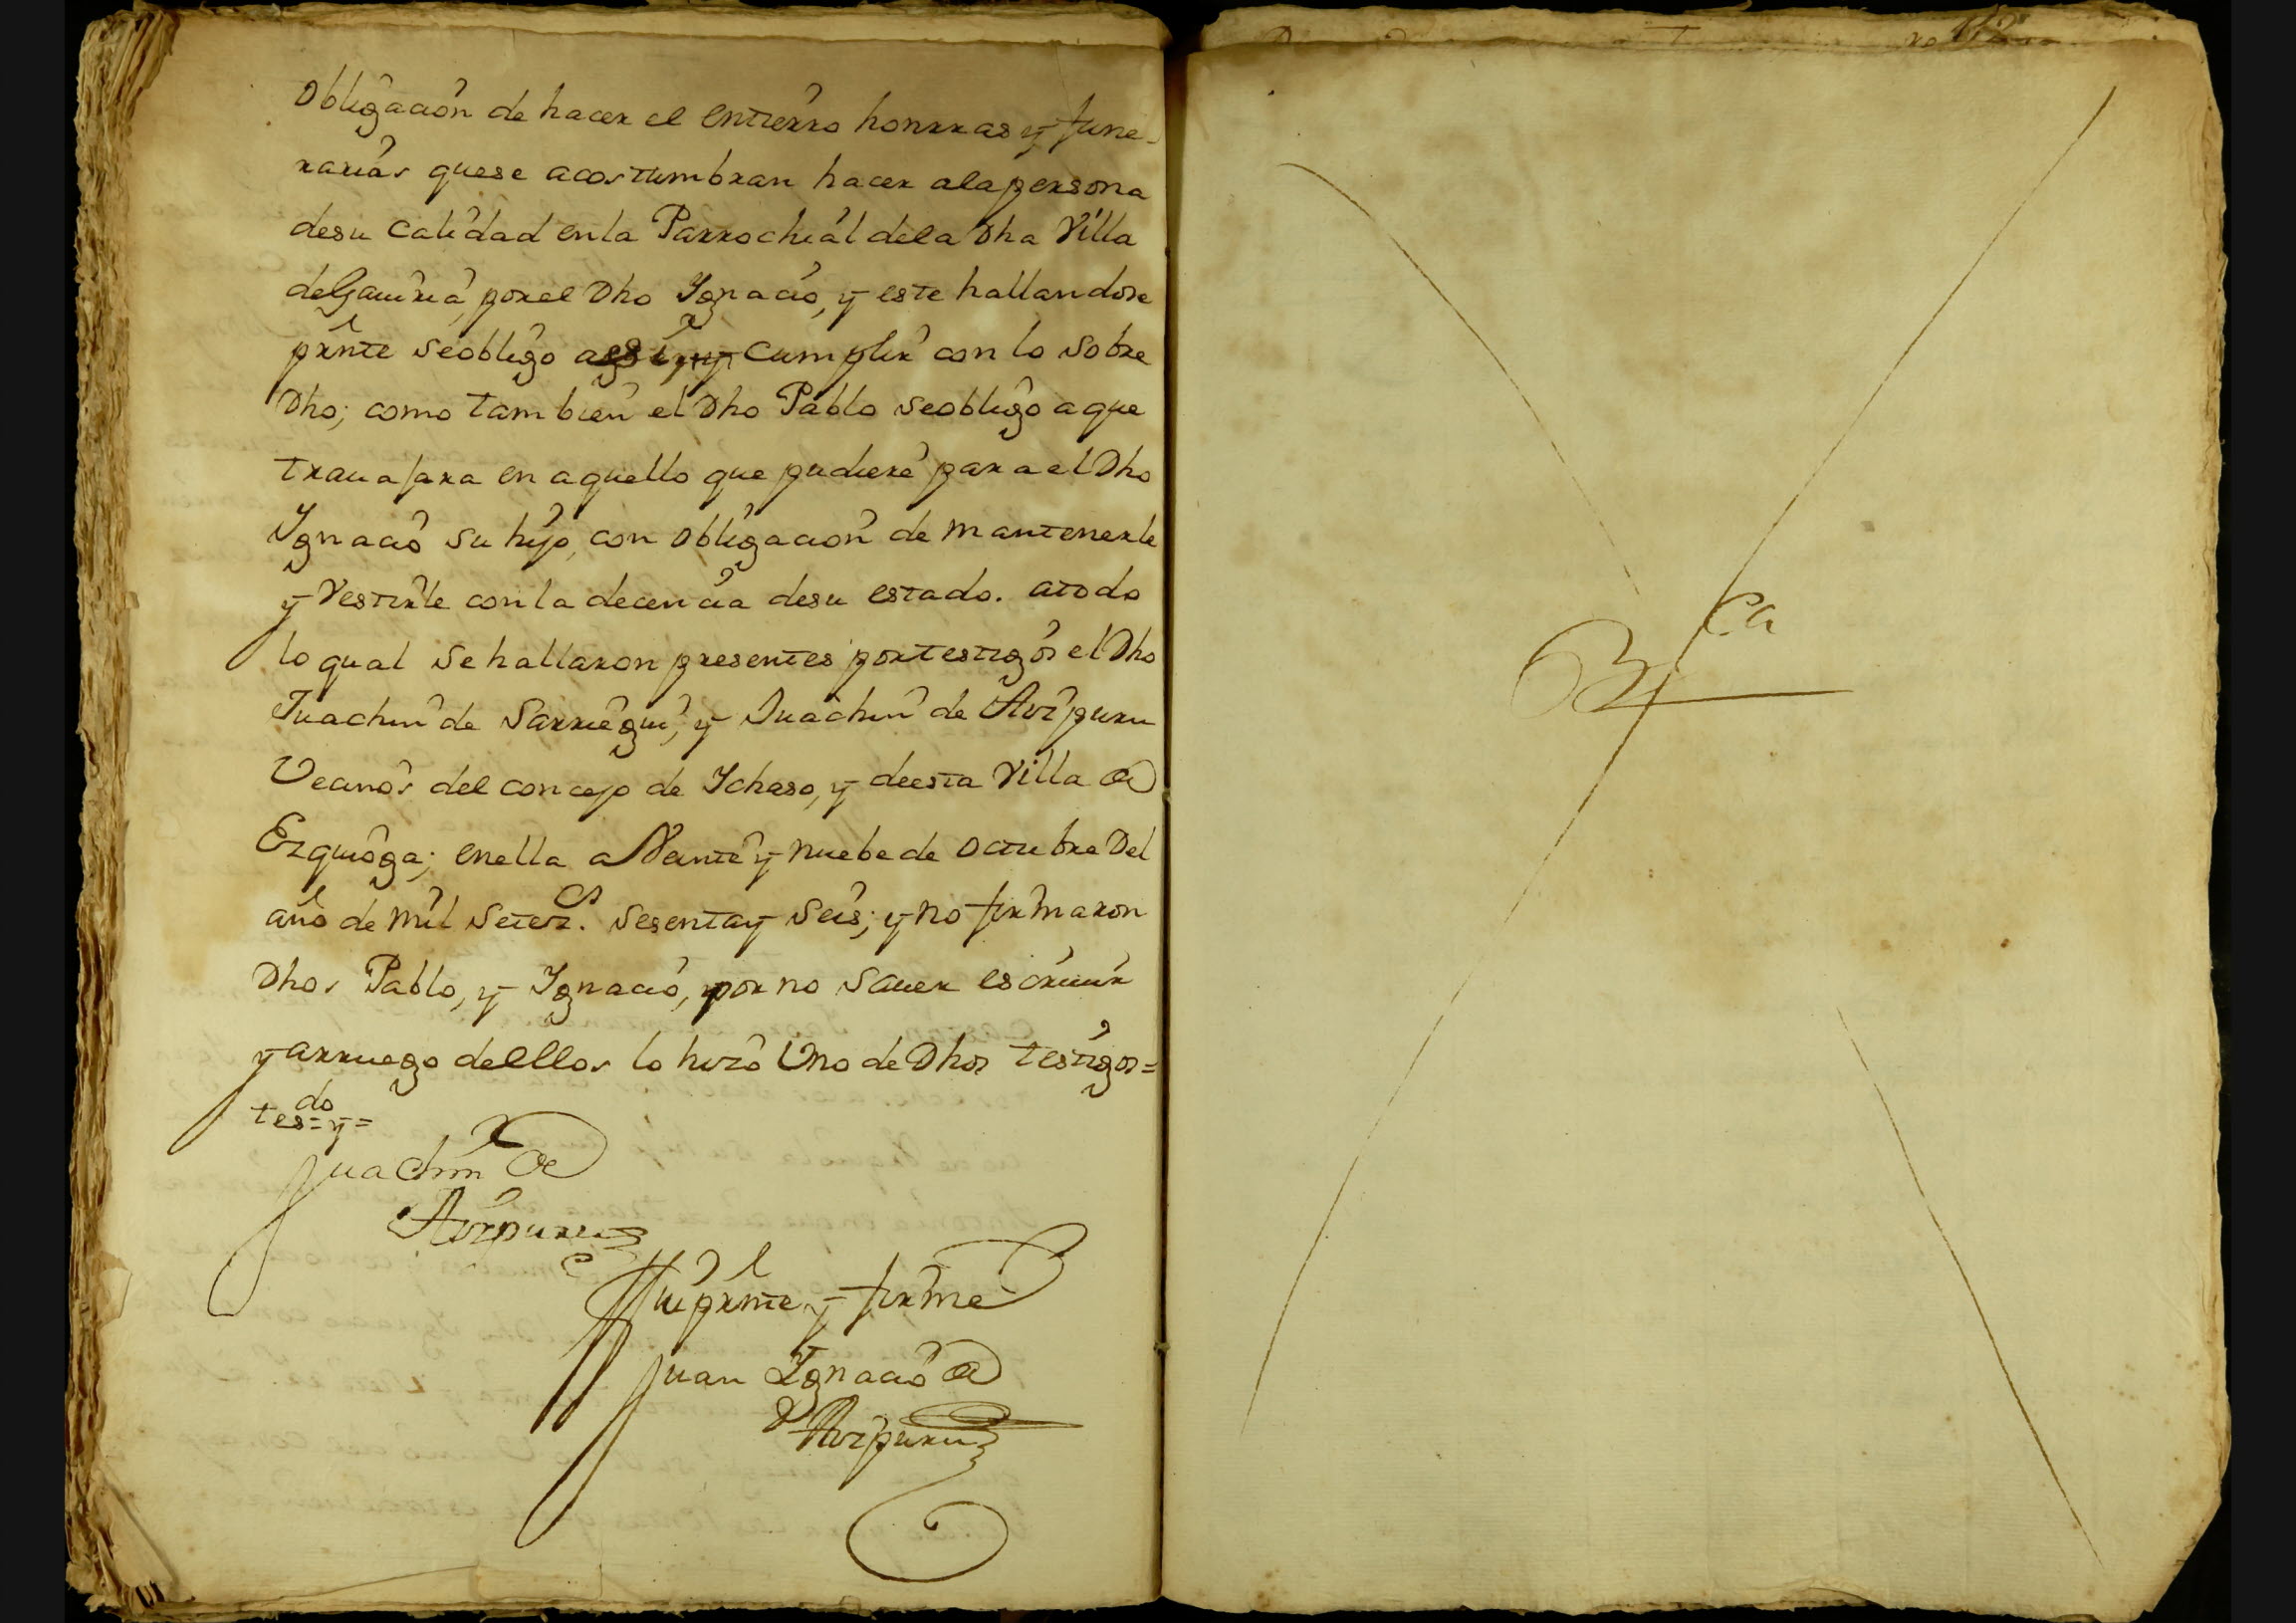 obligacion de hacer el entierro honrras y fune-
rarias quese acostumbran hacer ala persona
desu calidad enla Parrochial dela Dha Villa
de Gauiria, por el Dho Ygnacio, y este hallandose
prnte seobligo assi y cumplir con lo sobre
Dho; como tambien el Dho Pablo seobligo a que
trauajara en aquello que pudiere para el Dho
Ygnacio su hijo, con obligacion de mantenerle
y Vestirle con la decencia desu estado. atodo
lo qual se hallaron presentes por testigos el Dho
Juachin de Sarriegui, y Juachin de Aizpuru
Vecinos del concejo de Ichaso, y deesta Villa de
Ezquioga; enella a Veinte y nuebe de octubre Del
año de mil setezos. sesenta y seis; y no firmaron
Dhos Pablo, y Ygnacio, por no sauer escriuir
y arruego de ellos lo hizo Uno de Dhos testigos=
tesdo = y =
Juachin de
Aizpuru
Fui prnte y firme
Juan Ygnacio de
Aizpuru
112
Bca